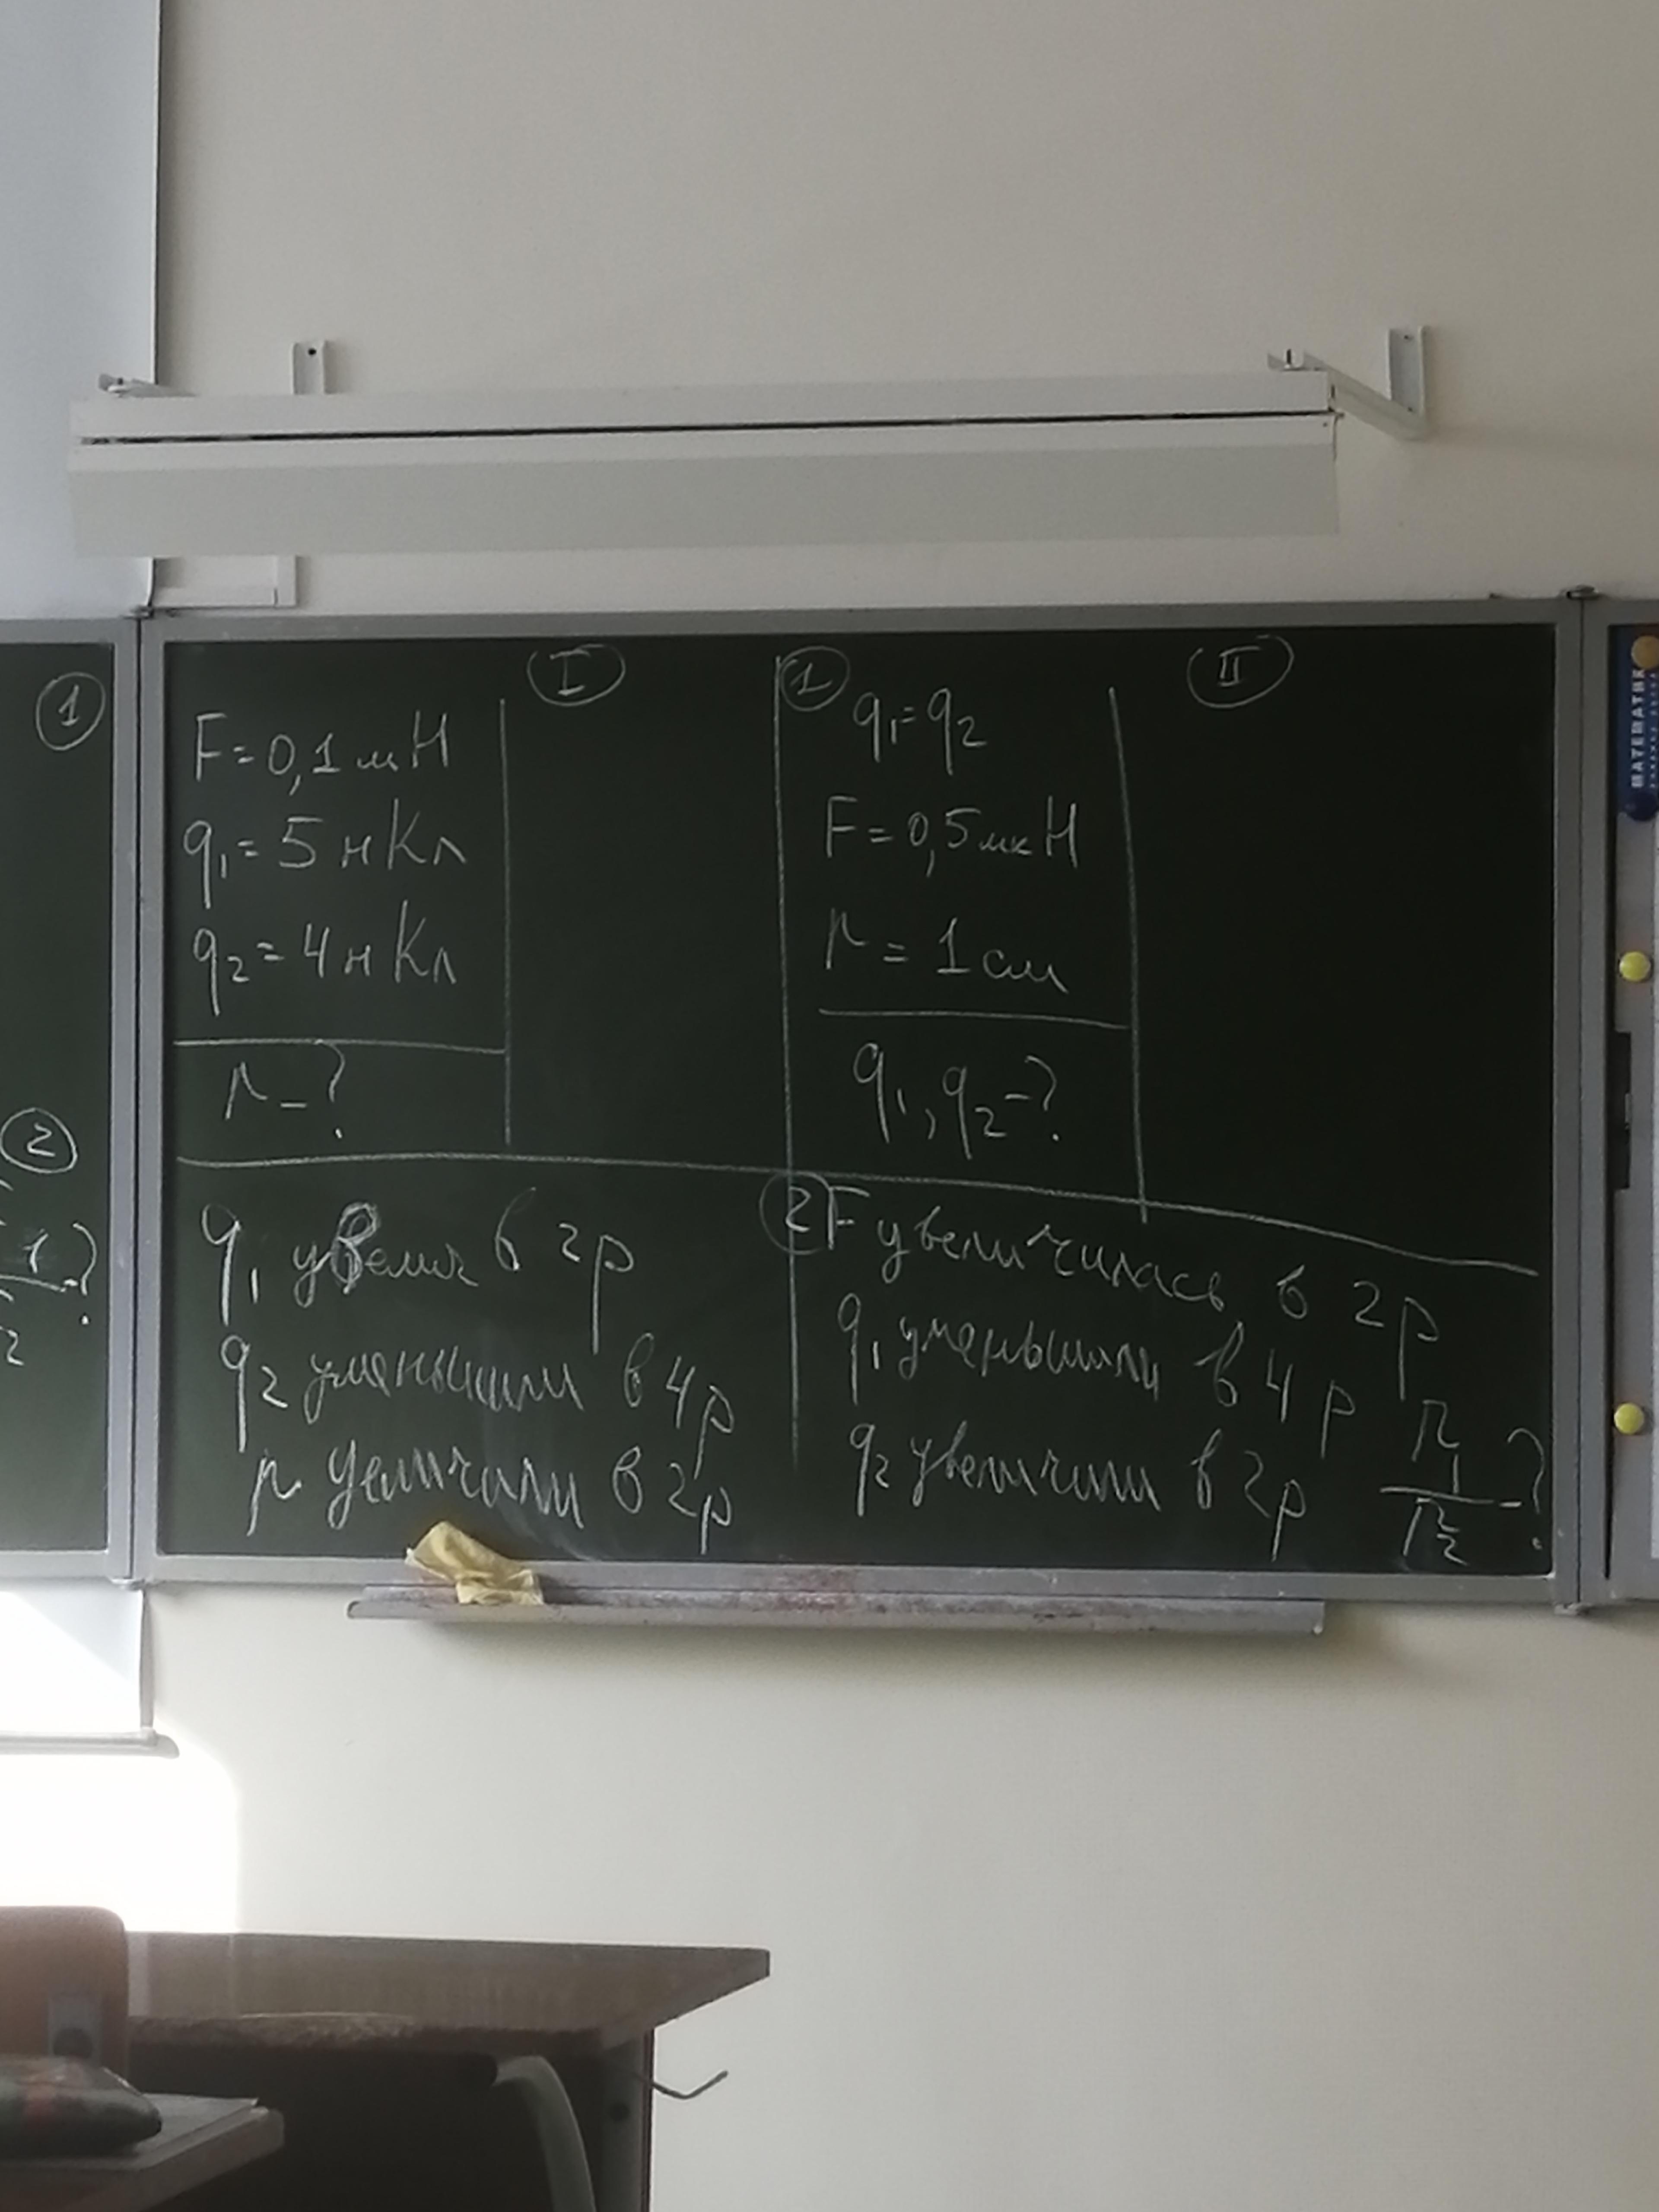 1
2
1
2
-?
I
F=0,1мН
q₁=5нКл
q₂=4нКл
r-?
q₁ увелич в 2р
q₂ уменьшили в 4р
r уеличили в 2р
II
1
q₁=q₂
F=0,5мкН
r=1см
q₁,q₂-?
2 F увеличилась в 2р
q₁ уменьшили в 4р
q₂ увеличили в 2р r₁/r₂-?
МАТЕМАТИК